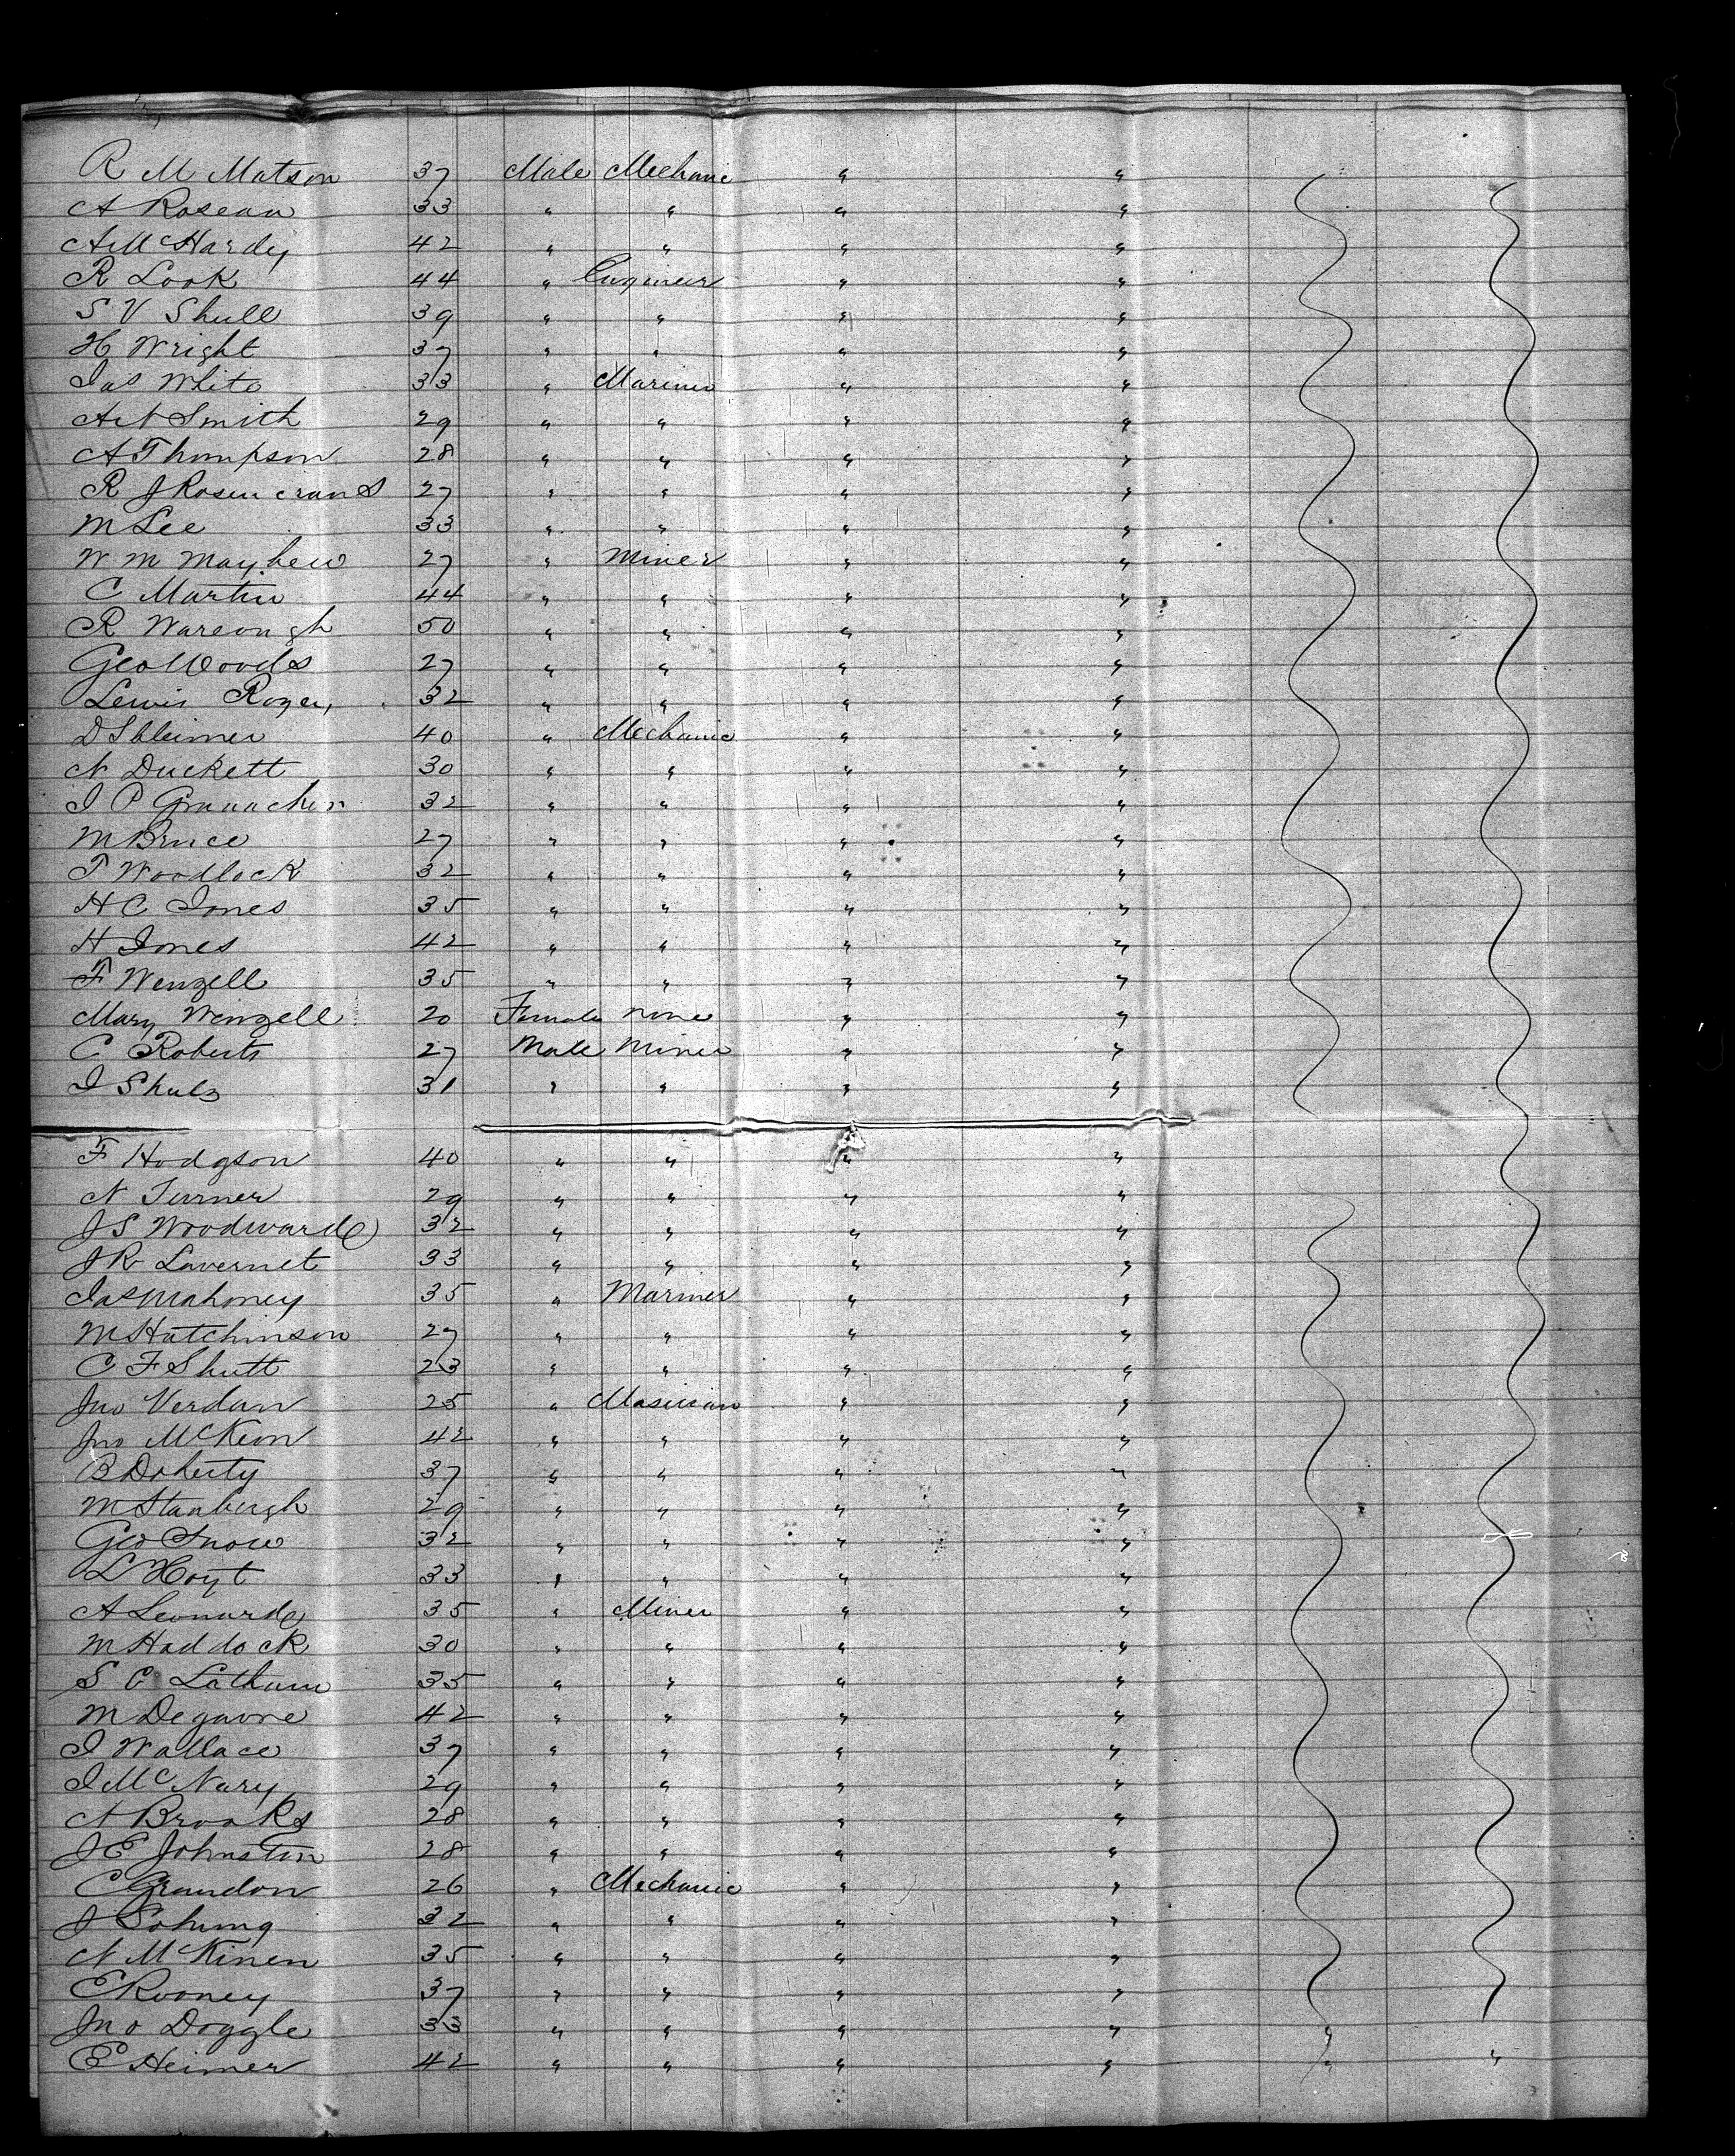 R M Matson 37 Male Mechanic " "
A Roseau 33 " " " "
A McHardy 42 " " " "
R Look 44 " Engineer " "
S V Shull 39 " " " "
H Wright 37 " " " "
Jas White 33 " Mariner " "
A N Smith 29 " " " "
A Thompson 28 " " " "
R J Rosencrans 27 " " " "
M Lee 33 " " " "
W M Mayhew 27 " Miner " "
C Martin 44 " " " "
R 50 " " " "
Geo Woods 27 " " " "
Lewis Roger, 32 " " " "
D 40 " Mechanic " "
N Duckett 30 " " " "
J P 32 " " " "
M Bruce 27 " " " "
P Woodlock 32 " " " "
H C Jones 35 " " " "
H Jones 42 " " " "
F Wenzell 35 " " " "
Mary Wenzell 20 Female None " "
C Roberts 27 Male Miner " "
J Shulz 31 " " " "
F Hodgson 40 " " " "
N Turner 29 " " " "
J S Woodward 32 " " " "
J R Lavernet 33 " " " "
Jas Mahoney 35 " Mariner " "
M Hutchinson 27 " " " "
C F Shutt 23 " " " "
Jno Verdan 25 " Musician " "
Jno McKeon 42 " " " "
B Doherty 37 " " " "
M Stanbergh 29 " " " "
Geo Snow 32 " " " "
L Hoyt 33 " " " "
A Leonard 35 " Miner " "
M Haddock 30 " " " "
S C Latham 35 " " " "
M 42 " " " "
J Wallace 37 " " " "
J McNary 29 " " " "
N Brooks 28 " " " "
J E Johnston 28 " " " "
C Grandon 26 " Mechanic " "
J 32 " " " "
N McKinen 35 " " " "
E Rooney 37 " " " "
Jno Doggle 33 " " " "
E Heimer 42 " " " " " "